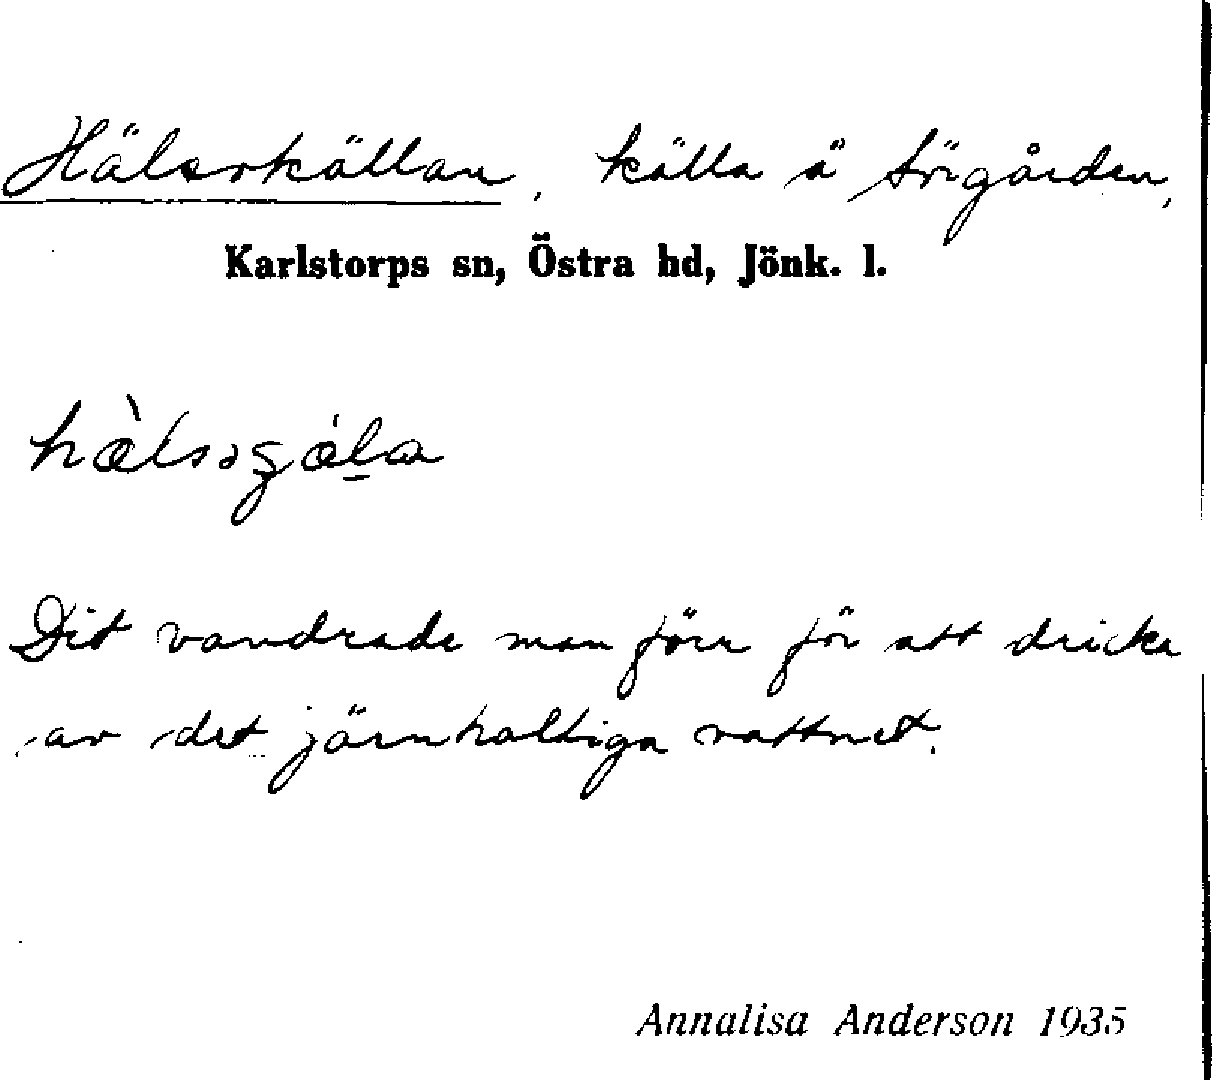 Hälsokällan, källa å Sörgården,
Karlstorps sn, Östra hd, Jönk. l.
Dit vandrade man förr för att dricka
av det järnhaltiga vattnet.
Annalisa Anderson 1935